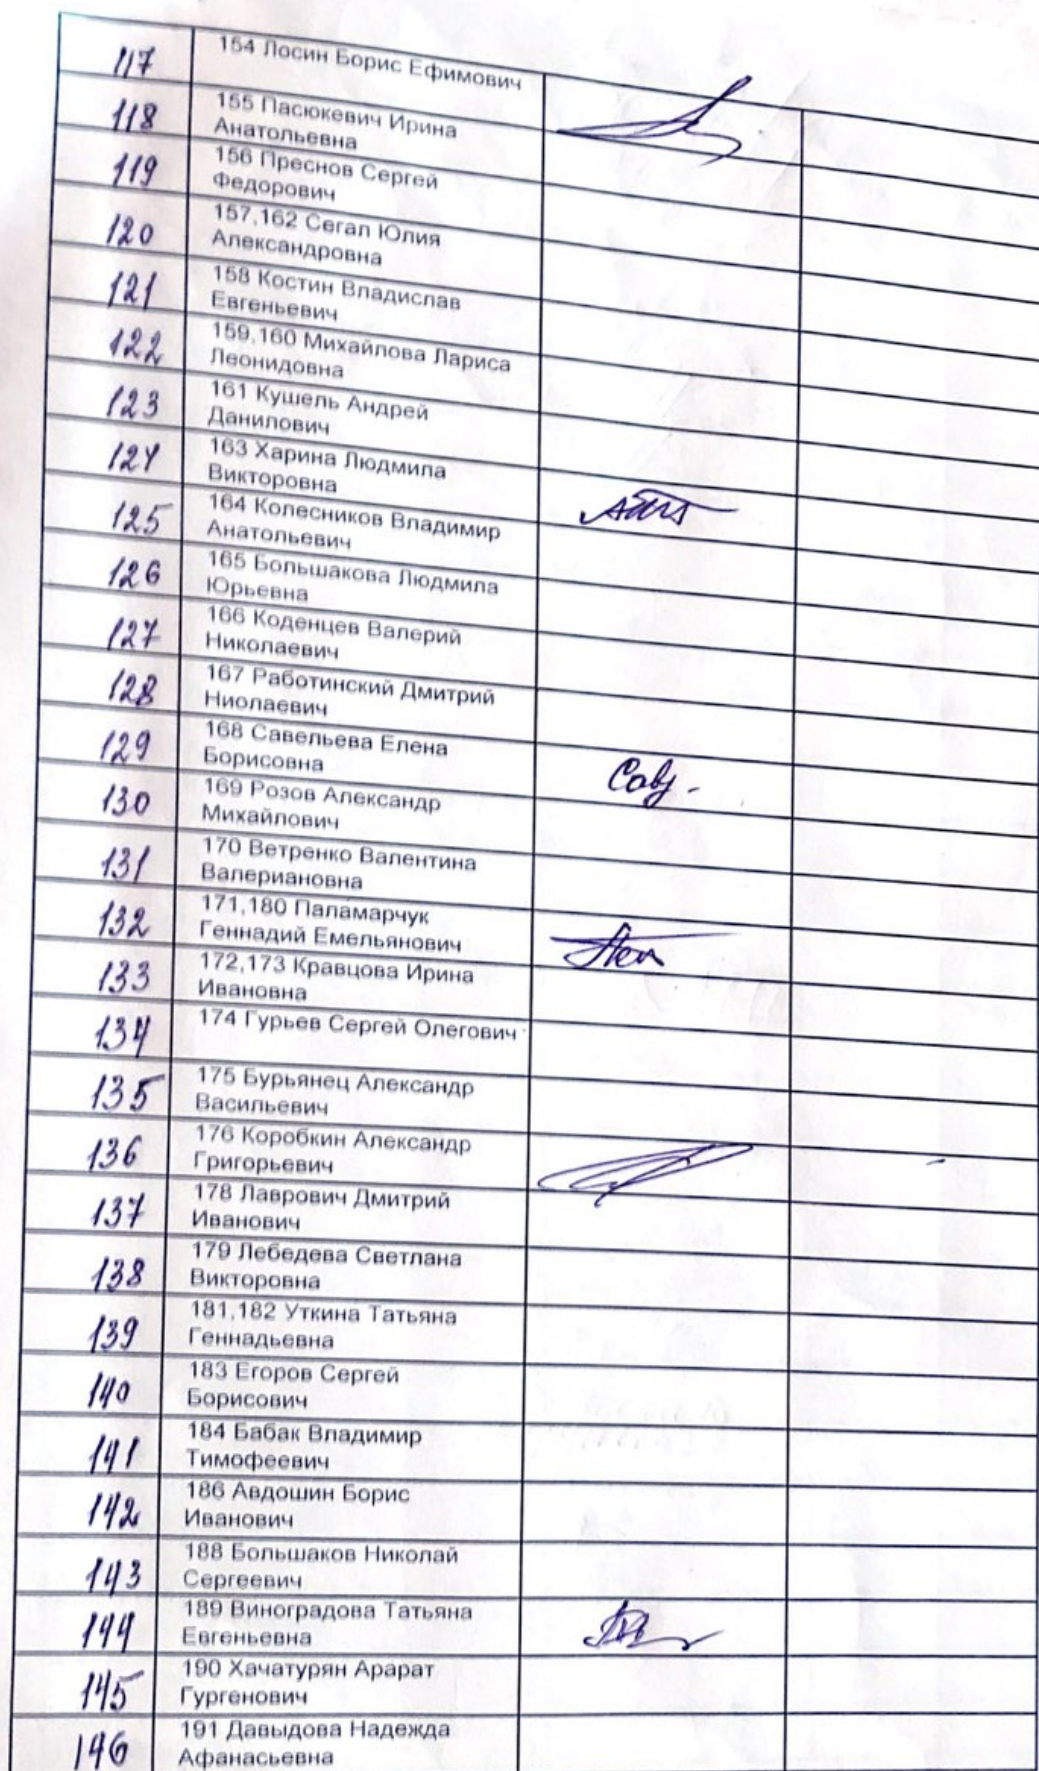 117 154 Лосин Борис Ефимович
118 155 Пасюкевич Ирина
Анатольевна
119 156 Преснов Сергей
Федорович
120 157,162 Сегал Юлия
Александровна
121 158 Костин Владислав
Евгеньевич
122 159,160 Михайлова Лариса
Леонидовна
123 161 Кушель Андрей
Данилович
124 163 Харина Людмила
Викторовна
125 164 Колесников Владимир
Анатольевич
126 165 Большакова Людмила
Юрьевна
127 166 Коденцев Валерий
Николаевич
128 167 Работинский Дмитрий
Ниолаевич
129 168 Савельева Елена
Борисовна
130 169 Розов Александр
Михайлович
131 170 Ветренко Валентина
Валериановна
132 171,180 Паламарчук
Геннадий Емельянович
133 172,173 Кравцова Ирина
Ивановна
134 174 Гурьев Сергей Олегович
135 175 Бурьянец Александр
Васильевич
136 176 Коробкин Александр
Григорьевич
137 178 Лаврович Дмитрий
Иванович
138 179 Лебедева Светлана
Викторовна
139 181,182 Уткина Татьяна
Геннадьевна
140 183 Егоров Сергей
Борисович
141 184 Бабак Владимир
Тимофеевич
142 186 Авдошин Борис
Иванович
143 188 Большаков Николай
Сергеевич
144 189 Виноградова Татьяна
Евгеньевна
145 190 Хачатурян Арарат
Гургенович
146 191 Давыдова Надежда
Афанасьевна